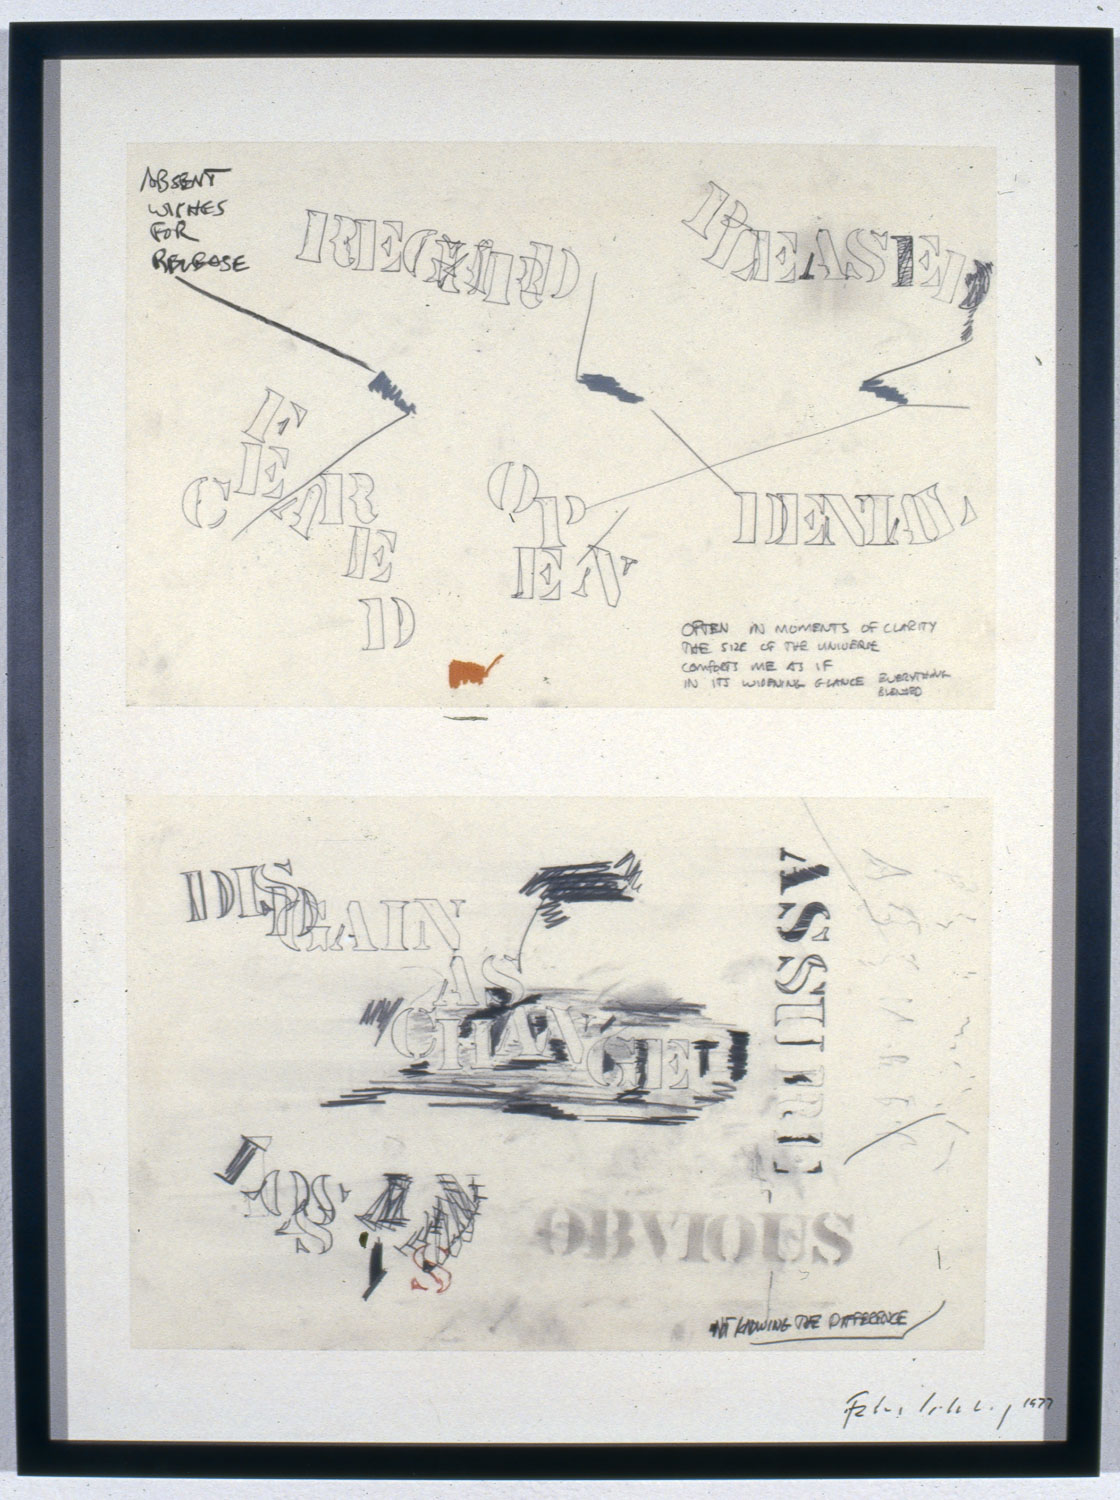 ABSENT
WISHES
FOR
RELEASE
REGARD
PLEASED
C FEARED
OPEN
DENIAL
OFTEN IN MOMENTS OF CLARITY
THE SIZE OF THE UNIVERSE
COMFORTS ME AS IF
IN ITS WIDENING GLANCE EVERYTHING
BLENDED
DISD
GAIN
AS
CHANGED
ASSURE
LOSS
OBVIOUS
NOT KNOWING THE DIFFERENCE
1977